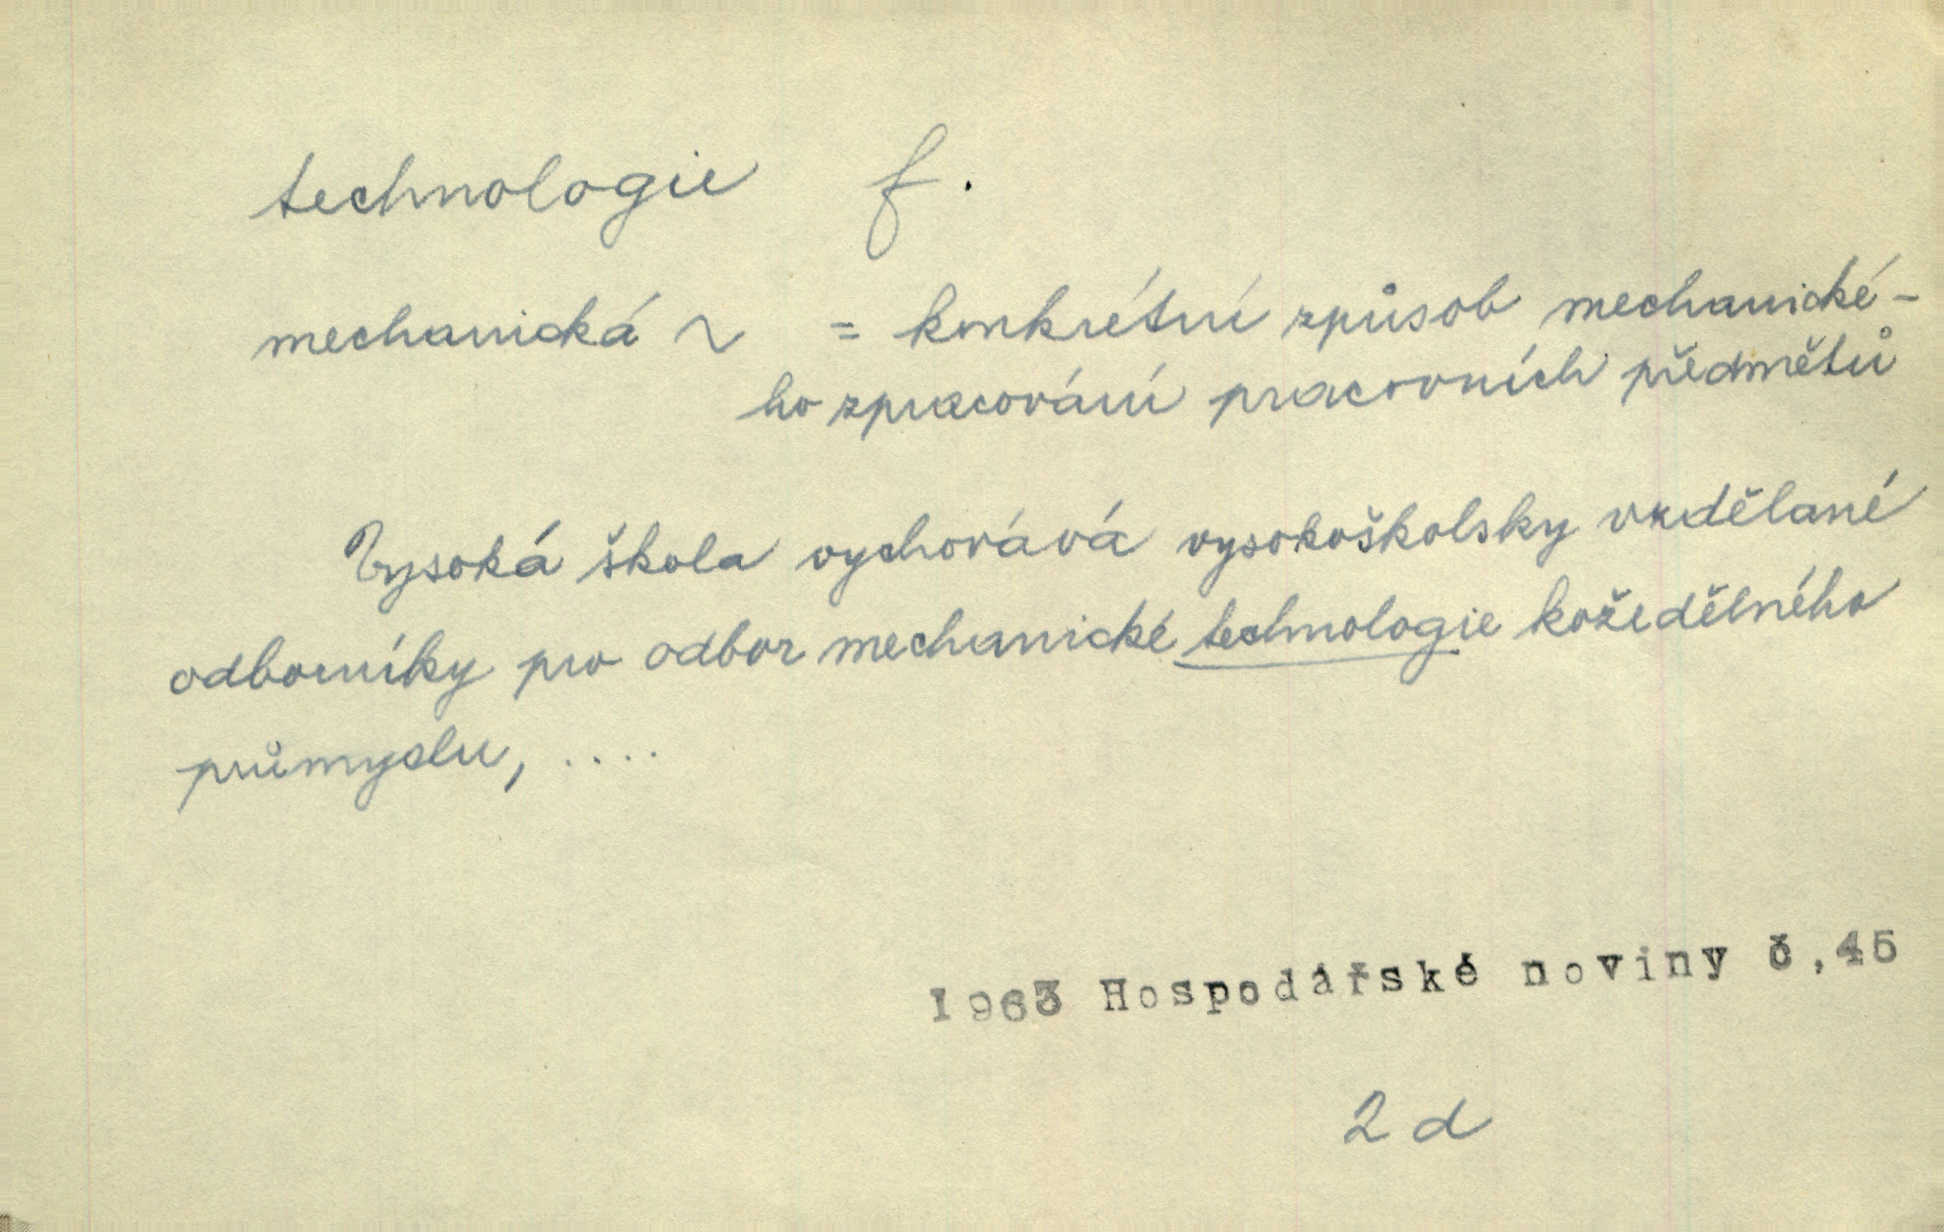 technologie f.
mechanická ~ = konkrétní způsob mechanické-
ho zpracování pracovních předmětů
Vysoká škola vychovává vysokoškolsky vzdělané
odborníky pro odbor mechanické technologie kožedělného
průmyslu, ....
1963 Hospodářské noviny č,45
2 d